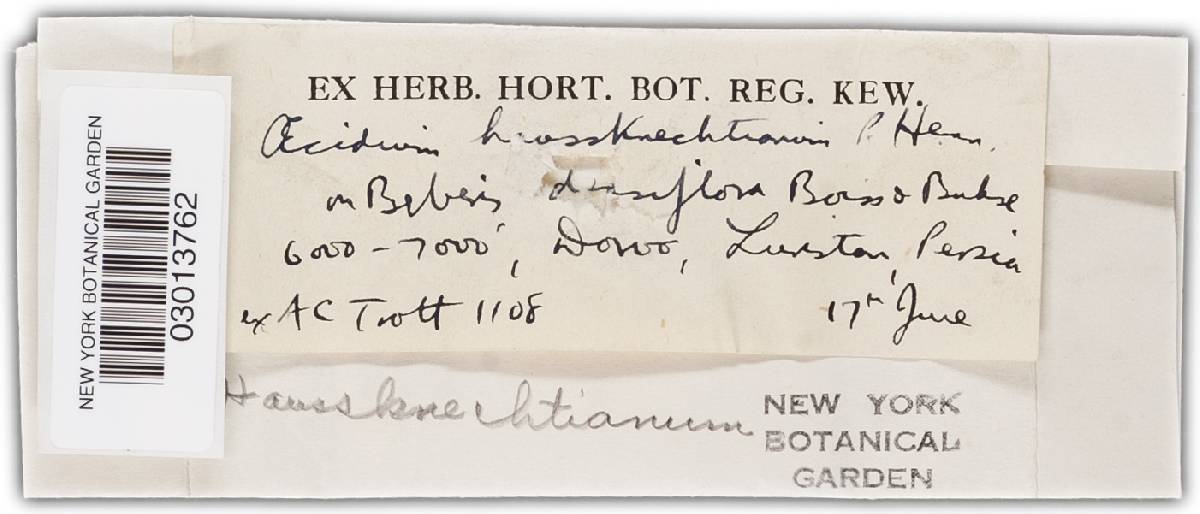 EX HERB. HORT. BOT. REG. KEW.
Æcidium haussknechtianum P. Henn.
on Berberis densiflora Boiss & Buhse
6000-7000', Dorno, Luristan, Persia
ex AC Trott 1108 17th June
Haussknechtianum
NEW YORK
BOTANICAL
GARDEN
NEW YORK BOTANICAL GARDEN
03013762